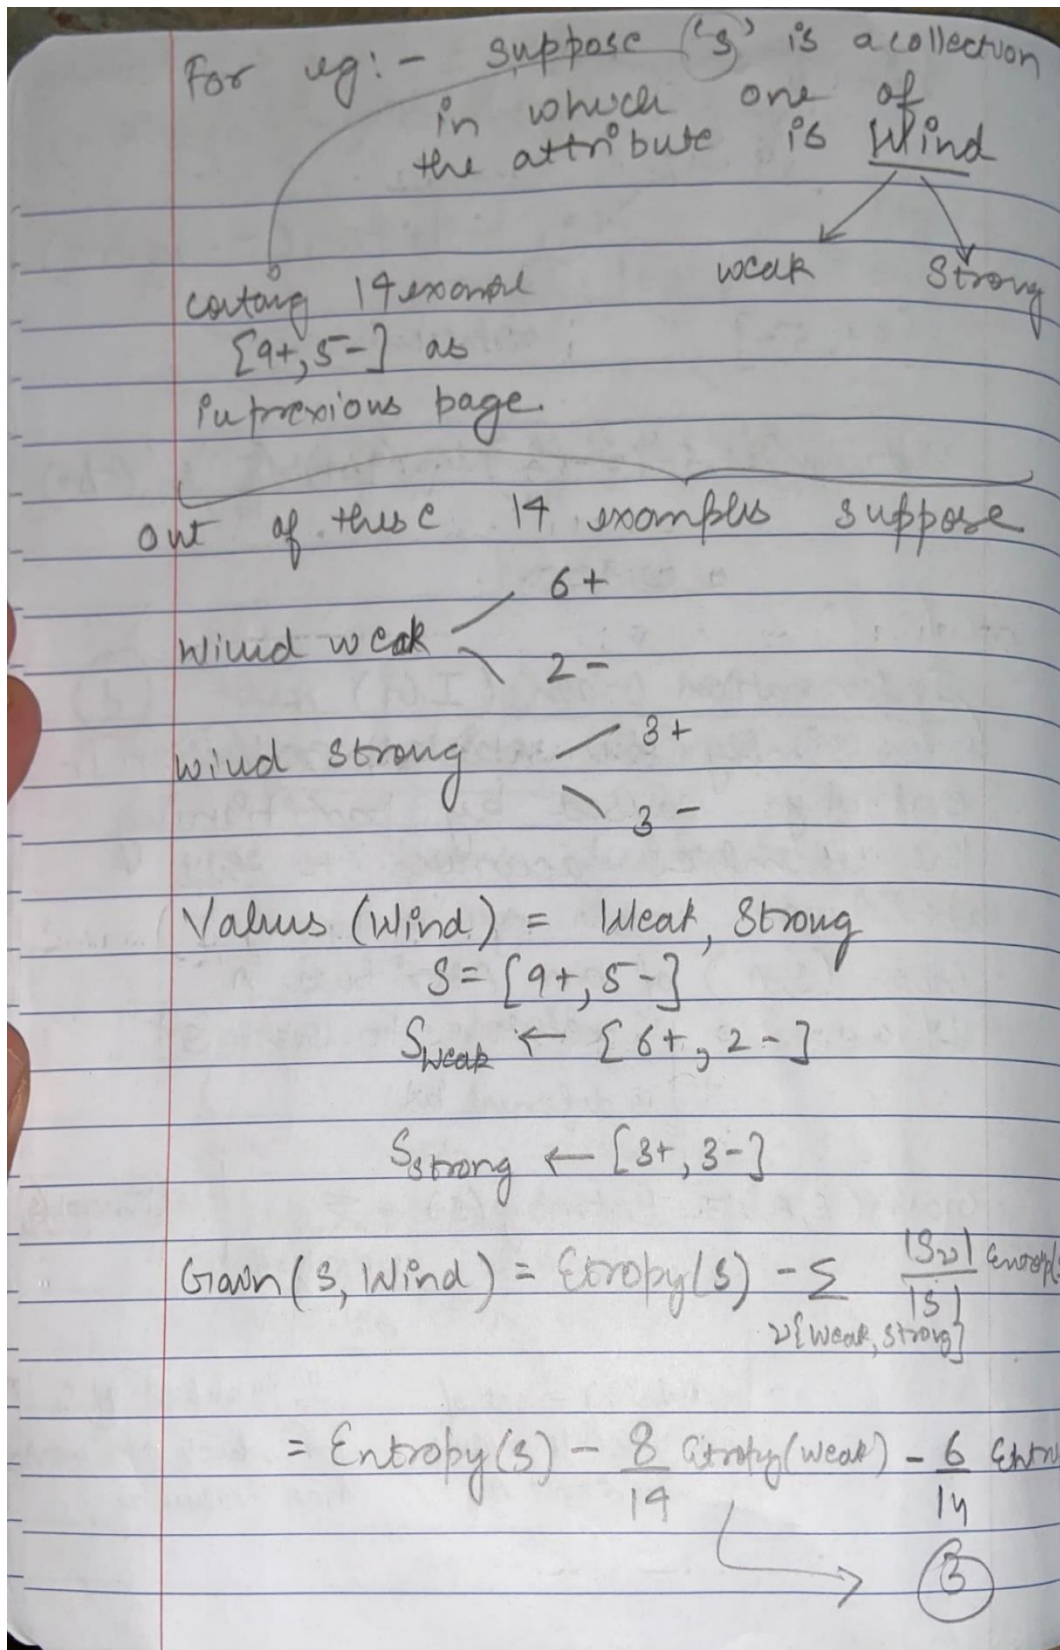 For eg:- suppose 's' is a collection
in which one of
the attribute is Wind
weak Strong
14 exampl
[9+, 5-] as
page.
out of these 14 examples suppose
6+
Wind weak
2-
3+
Wind strong
3-
Values (Wind) = Weak, Strong
S = [9+, 5-]
Sweak ← [6+, 2-]
Sstrong ← [3+, 3-]
Gain (S, Wind) = Etropy(S) - Σ |Sv| / |S|
v{Weak, strong}
= Entropy(S) - 8/14 Etropy(weak) - 6/14
3